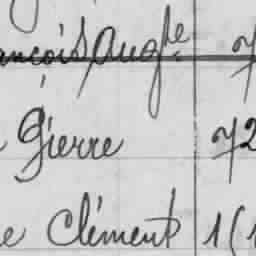 ançois Augte 7
Pierre 72
e Clément 1(1